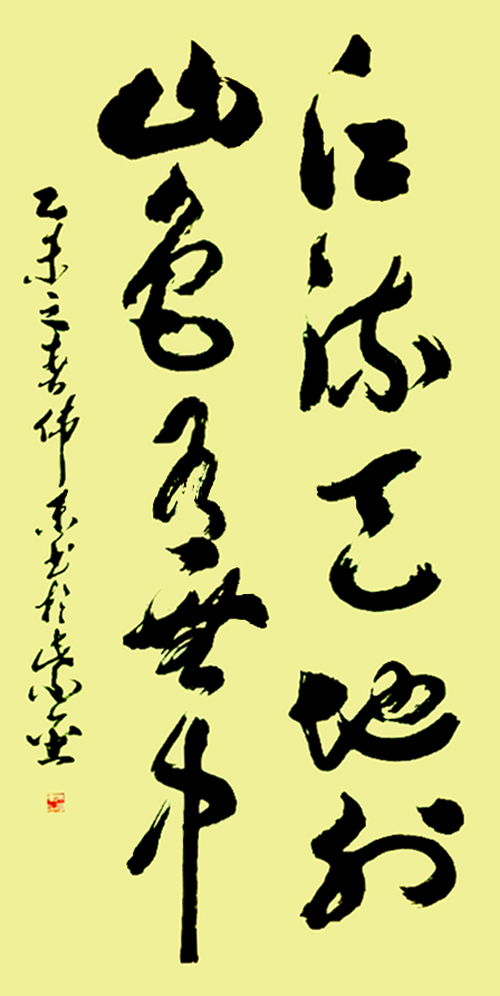 江流天地外
山色有無中
乙未之春伟东书於紫金